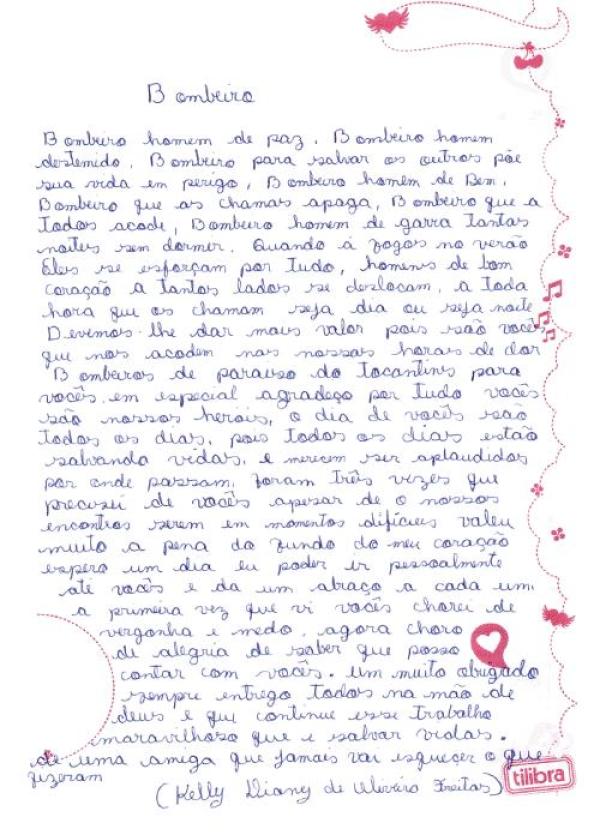 Bombeiro
Bombeiro homem de paz. Bombeiro homem
destemido, Bombeiro para salvar os outros põe
sua vida em perigo, Bombeiro homem de Bem,
Bombeiro que as chamas apaga, Bombeiro que a
todos acode, Bombeiro homem de garra tantas
noites sem dormer. Quando á fogos no verão
Eles se esforçam por tudo, homens de bom
coração a tantos lados se deslocam, a toda
hora que os chamam seja dia ou seja noite
Devemos-lhe dar mais valor pois são vocês
que nos acodem nas nossas horas de dor
Bombeiros de paraiso do tocantins para
vocês em especial agradeço por tudo vocês
são nossos herois, o dia de vocês são
todos os dias, pois todos os dias estão
salvando vidas, e merecem ser aplaudidos
por onde passam, foram três vezes que
precisei de vocês apesar de o nossos
encontros serem em momentos difíceis valeu
muito a pena do fundo do meu coração
espero um dia eu poder ir pessoalmente
até vocês e da um abraço a cada um,
a primeira vez que vi vocês chorei de
vergonha e medo, agora choro
de alegria de saber que posso
contar com vocês. um muito obrigado
sempre entrego todos na mão de
deus e que continue esse trabalho
maravilhoso que e salvar vidas.
de uma amiga que jamais vai esqueçer o que
fizeram
(Kelly Diany de Oliveira Freitas)
tilibra